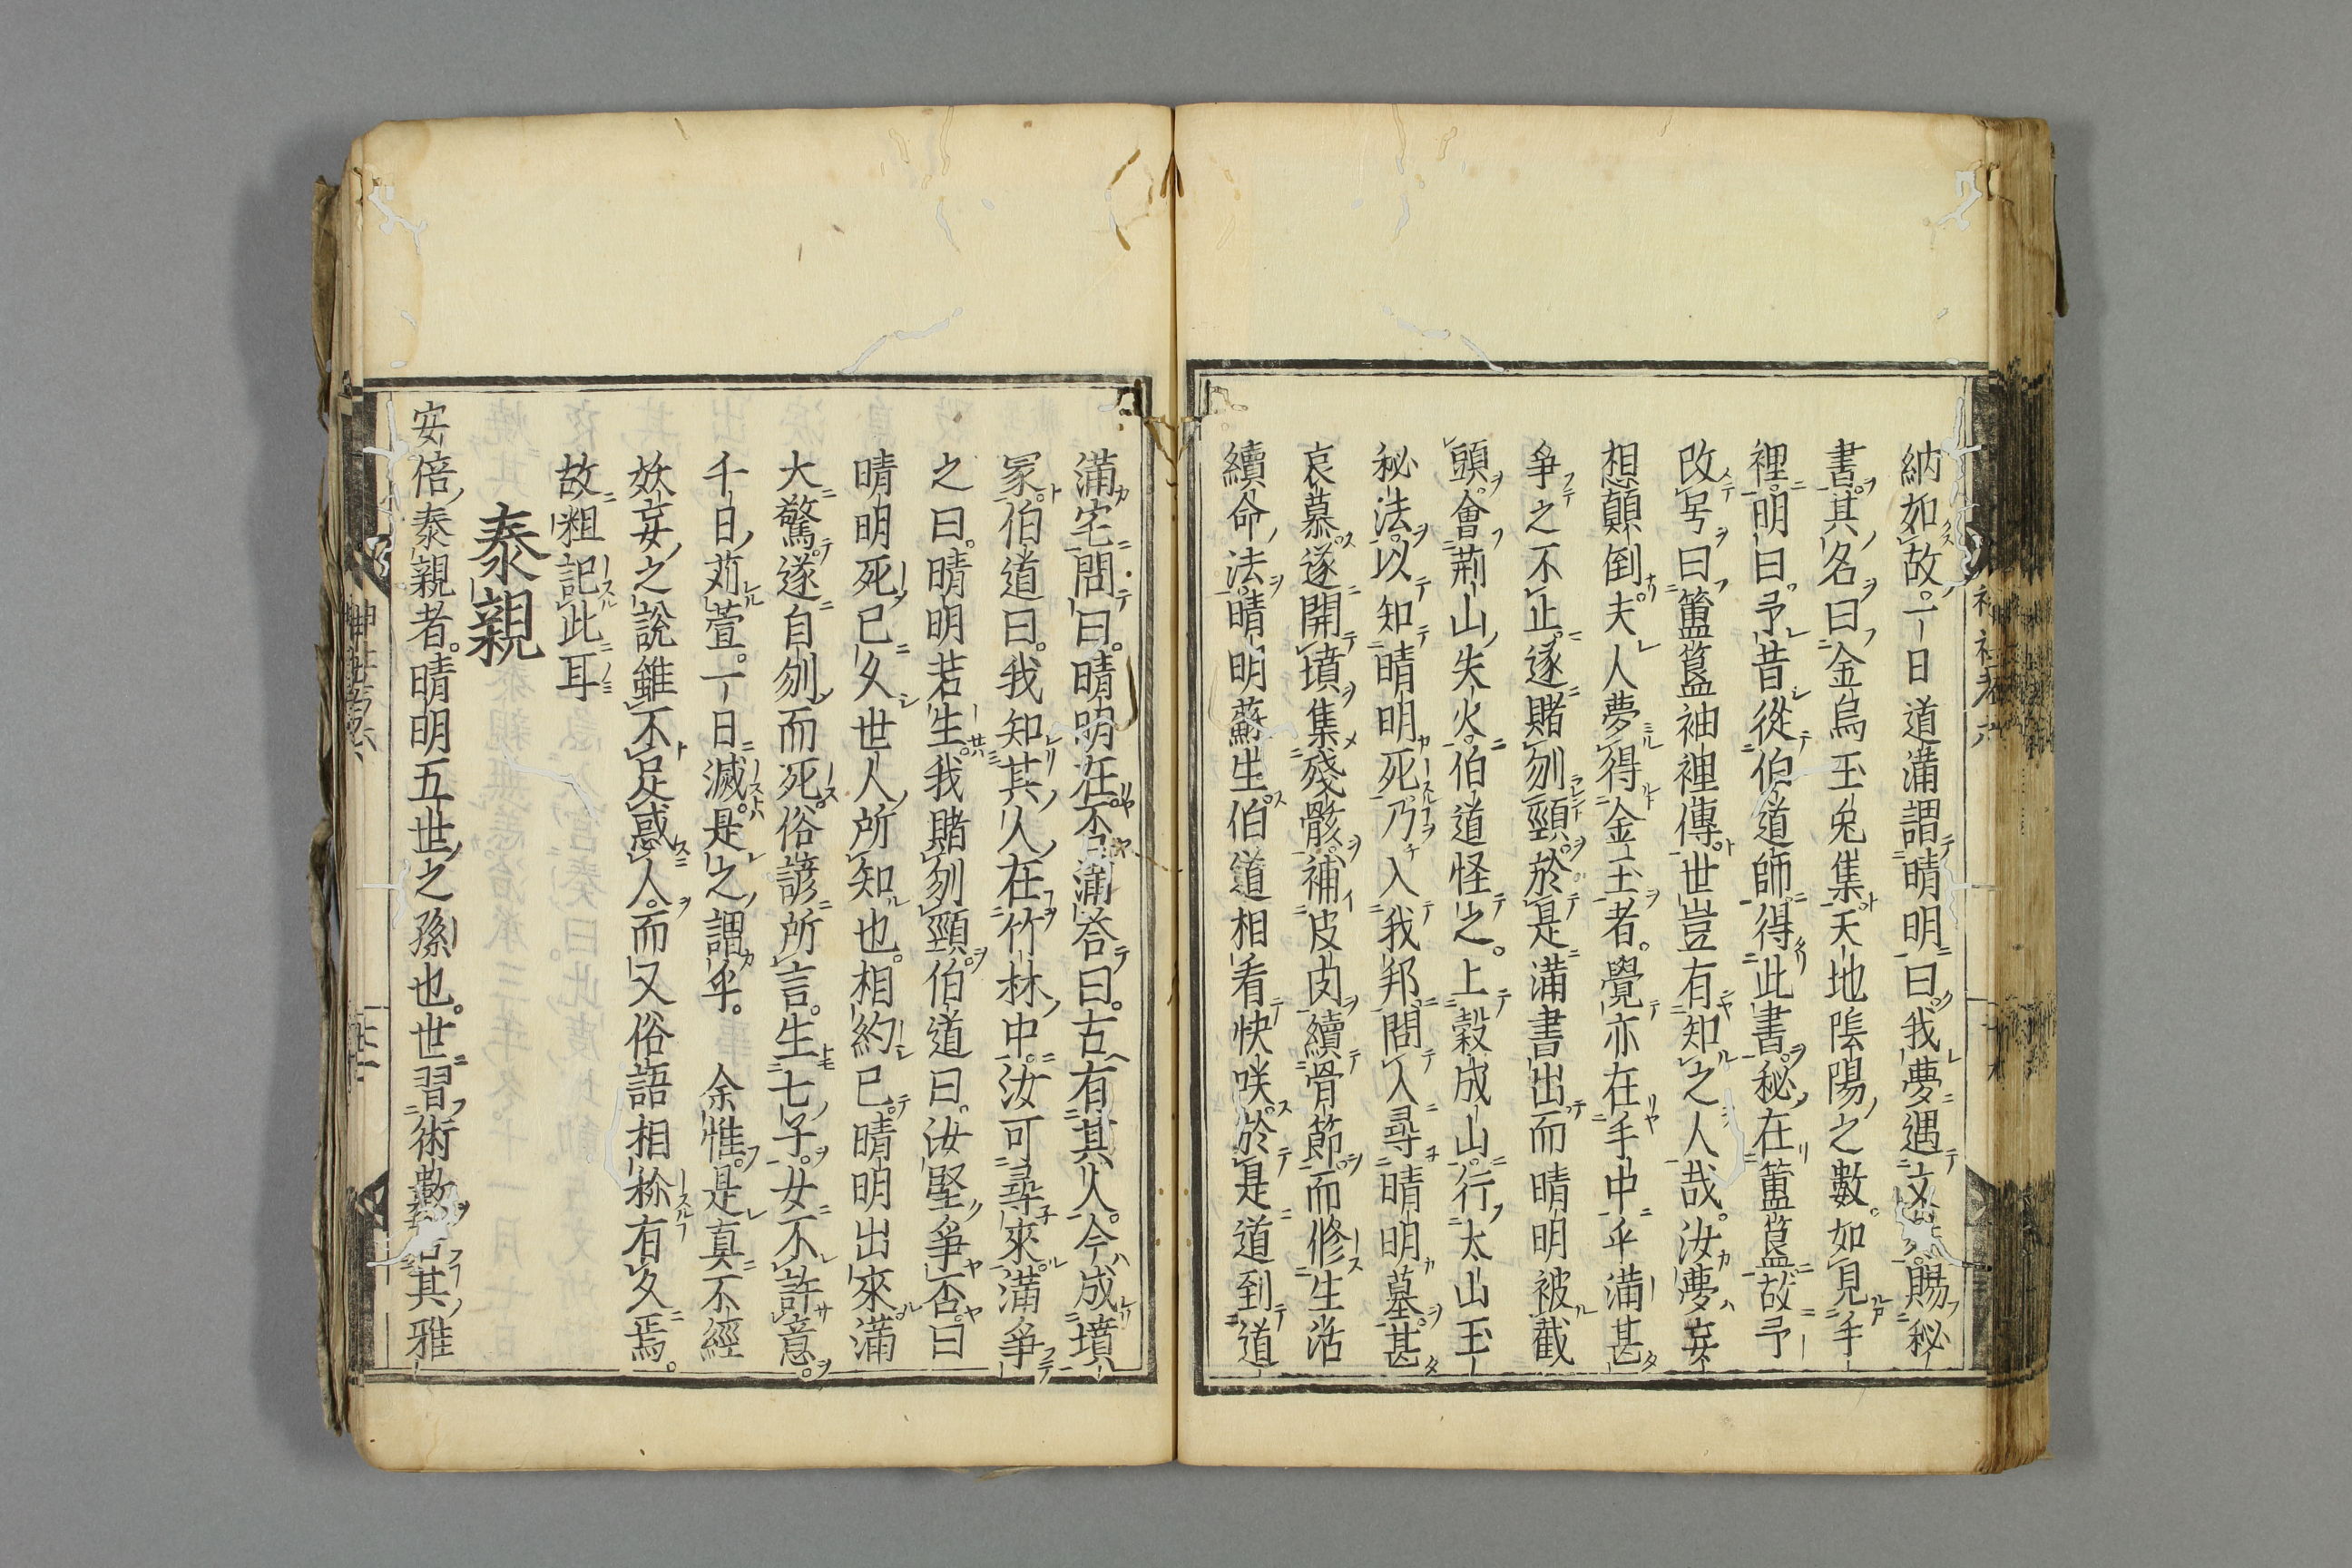 納如故。一日道滿謂晴明曰我夢遇文賜秘
書其名曰金烏玉兎集天地陰陽之數。如見手
裡。明曰。予昔從伯道師得此書。秘在簠簋故予
改号曰簠簋袖裡傳。世豈有知之人哉。汝夢妄
想顛倒。夫人夢得金玉者。覺亦在手中乎滿甚
爭之不止。遂賭刎頸。於是滿書出而晴明被截
頭。會荊山失火。伯道怪之。上穀成山。行太山玉
秘法。以知晴明死。乃入我邦。問人尋晴明墓。甚
哀慕。遂開墳集殘骸。補皮肉續骨節。而修生活
續命法。晴明蘇生。伯道相看快咲。於是道到道
滿宅問曰。晴明在不。滿荅曰。古有其人。今成墳
冢。伯道曰。我知其人在竹林中。汝可尋來。滿爭
之曰。晴明若生。我賭刎頸。伯道曰。汝堅爭否。曰
晴明死已久世人所知也。相約已。晴明出來。滿
大驚。遂自刎而死。俗諺所言。生七子。女不許意。
千日苅萱。一日滅。是之謂乎。　余惟。是真不經
妖妄之說雖不足惑人。而又俗語相称有久焉。
故粗記此耳
泰親
安倍泰親者。晴明五世之孫也。世習術數其雅